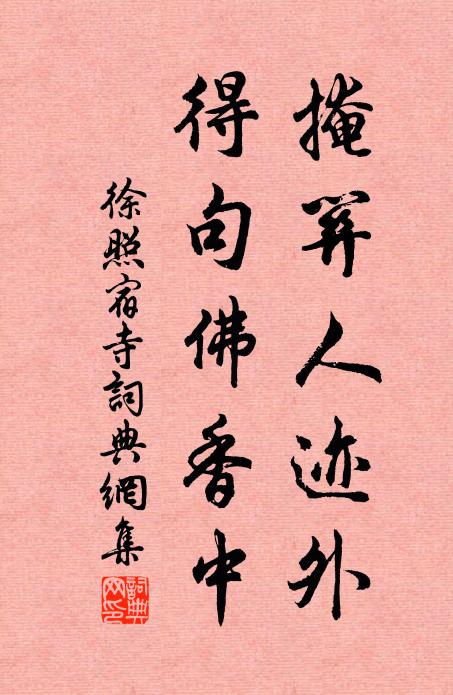 掩関人迹外
得句佛香中
徐照宿寺詞典網集
詞典网印